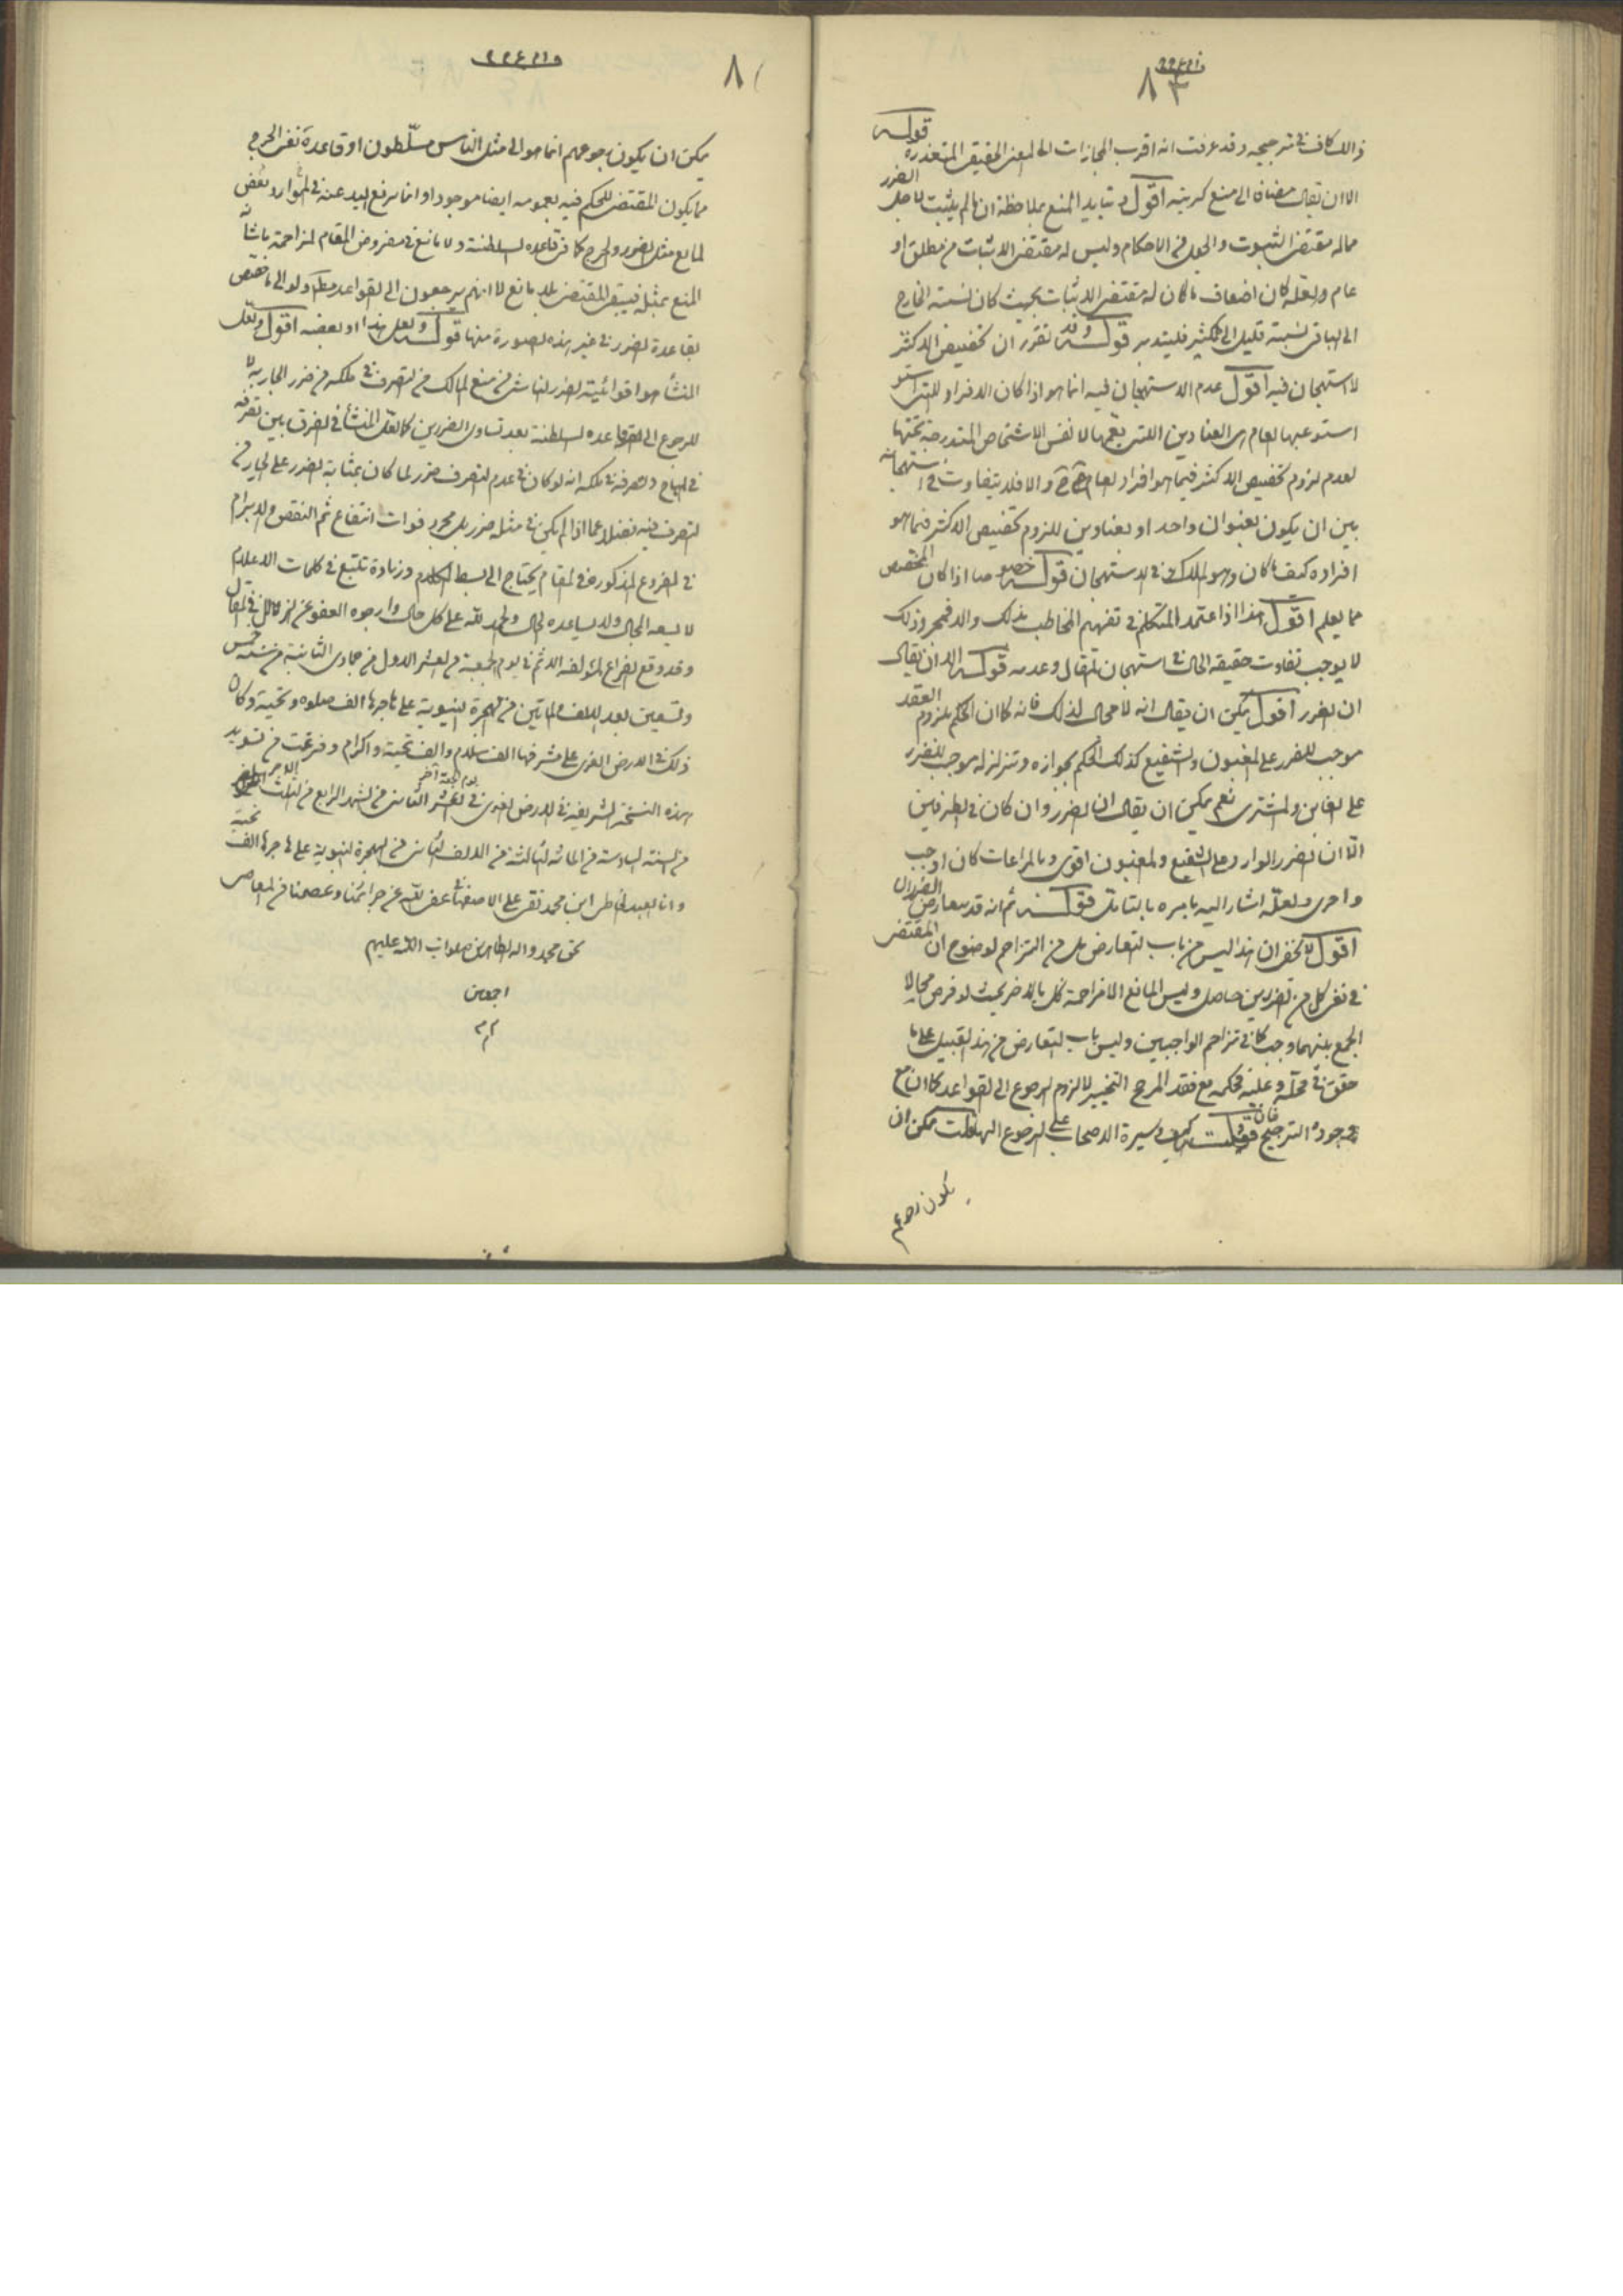 ٨٣
ذالك كاف فى ترجيحه وقد عرفت انه اقرب المجازات الى المعنى الحقيقى المتعذرة قوله
الا ان يقال مضافا الى منع اقول تايد المنع بملاحظة ان ما لم يثبت لاجل الضرر
مما له مقتضى الثبوت والجعل فى الاحكام وليس له مقتضى الاثبات من مطلق او
عام ولعله كان اضعاف ما كان له مقتضى الاثبات بحيث كان نسبته الخارج
الى الباقى نسبته قليل الى الكثير فليتدبر قوله وقد تقرر ان تخصيص الاكثر
لا استهجان فيه اقول عدم الاستهجان فيه انما هو اذا كان الافراد للتى
استوعبها العام هى العناوين اللتى يعمها لا نفس الاشخاص المندرجة تحتها
لعدم لزوم تخصيص الاكثر فيما هو افراد العام ح والا فلا يتفاوت فى استهجانه
بين ان يكون بعنوان واحد او بعناوين للزوم تخصيص الاكثر فيما هو
افراده كيف ما كان وهو الملاك فى الاستهجان قوله خصوصا اذا كان المخصص
مما يعلم اقول هذا اذا اعتمد المتكلم فى تفهيم المخاطب بذلك والا فمجرد ذلك
لا يوجب تفاوت حقيقه الحال فى استهجان المقال وعدمه قوله الا ان يقال
ان الضرر اقول يمكن ان يقال انه لا مجال لذلك فانه كما ان الحكم بلزوم العقد
موجب للضرر على المغبون والشفيع كذلك الحكم بجوازه وتزلزله موجب للضرر
على الغابن والمشترى نعم يمكن ان يقال ان الضرر وان كان فى الطرفين
الا ان الضرر الوارد على الشفيع والمغبون اقوى وبالمراعات كان اوجب
واحرى ولعله اشار اليه بامره بالتامل قوله ثم انه قد يتعارض الضرران
اقول لا يخفى ان هذا ليس من باب التعارض بل من التزاحم لوضوح ان المقتضى
فى نفى كل من الضررين حاصل وليس المانع الا مزاحمة كل بالاخر بحيث لو فرض محالا
الجمع بينهما وجب كما فى تزاحم الواجبين وليس باب التعارض من هذا القبيل على ما
حقق فى محله وعليه فحكمه مع فقد المرجح التخيير لا لزوم الرجوع الى القواعد كما ان مع
وجوده الترجيح قوله فان قلت سيرة الاصحاب على الرجوع اليها قلت يمكن ان
يكون رجوعهم
٨
يمكن ان يكون رجوعهم انما هو الى مثل الناس مسلّطون او قاعدة نفى الحرج
مما يكون المقتضى للحكم فيه بعمومه ايضا موجودا وانما رفع اليد عنه فى الموارد بعض
لمانع مثل الضرر والحرج كما فى قاعده السلطنة ولا مانع فى مفروض المقام لمزاحمة ما شانه
المنع بمثله فيبقى المقتضى بلا مانع لا انهم يرجعون الى القواعد مط ولو الى ما خصص
بقاعدة الضرر فى غير هذه الصورة منها قوله ولعل هذا او بعضه اقول ولعل
المنشأ هو اقوائية الضرر الناشى من منع المالك من التصرف فى ملكه من ضرر الجار به لا
للرجوع الى القاعده السلطنة بعد تساوى الضررين كما لعل المنشأ فى الفرق بين تصرفه
فى المباح وتصرفه فى ملكه انه لو كان فى عدم التصرف ضرر لما كان بمثابة الضرر على الجار من
التصرف فيه فضلا عما اذا لم يكن فى مثله ضرر بل مجرد فوات انتفاع ثم النقض والابرام
فى الفروع المذكورة فى المقام يحتاج الى بسط الكلام وزيادة تتبع فى كلمات الاعلام
لا يسعه المجال ولا يساعده الحال والحمد لله على كل حال وارجوه العفو عن الزلل فى المقال
وقد وقع الفراغ لمؤلفه الاثم فى يوم الجمعة من العشر الاول من جمادى الثانية من سنة خمس
وتسعين بعد الالف والماتين من الهجرة النبوية على هاجرها الف صلوه وتحية وكان
ذلك فى الارض الغرى على مشرفها الف سلام والف تحية واكرام وفرغت من تسويد
هذه النسخة الشريفة فى الارض الغرى فى يوم الجمعة اخر العشر الثامن من الشهر الرابع من الثلث الاخر
من السنة السادسة من المائة الثالثة من الالف الثانى من الهجرة النبوية على هاجرها الف تحية
وانا العبد الخاطى ابن محمد تقى على الاصفهانى عفى الله عن جرائمنا وعصمنا من المعاصى
بحق محمد واله الطاهرين صلوات الله عليهم
اجمعين